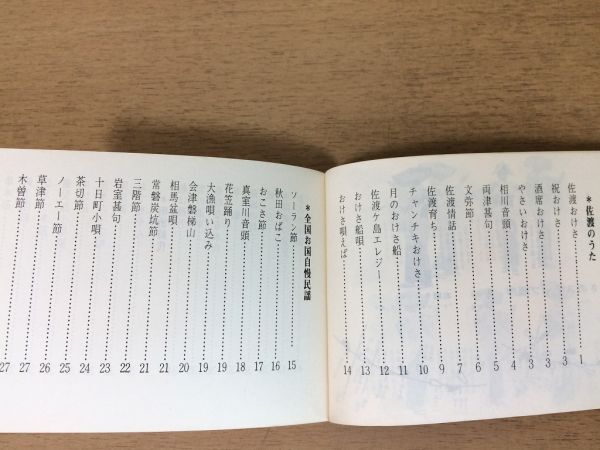 *佐渡のうた
佐渡おけさ……1
祝おけさ……3
酒席おけさ……3
やさいおけさ……3
相川音頭……4
両津甚句……5
文弥節……6
佐渡情話……7
佐渡育ち……9
チャンチキおけさ……10
月のおけさ船……11
佐渡ケ島エレジー……12
おけさ船唄……13
おけさ唄えば……14
*全国お国自慢民謡
ソーラン節……15
秋田おばこ……16
おこさ節……17
真室川音頭……18
花笠踊り……19
大漁唄い込み……19
会津磐梯山……20
相馬盆唄……21
常磐炭坑節……21
三階節……22
岩室甚句……23
十日町小唄……24
茶切節……25
ノーエー節……26
草津節……27
木曽節……27